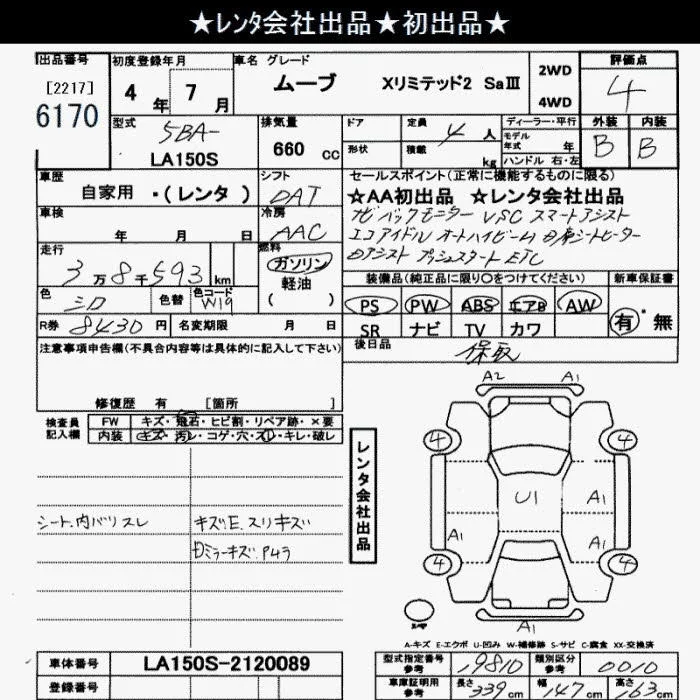 ★レンタ会社出品★初出品★
出品番号
[2217]
6170
初度登録年月
4年 7月
車名 グレード
ムーブ Xリミテッド2 SaⅢ
2WD
4WD
評価点
4
型式
5BA-
LA150S
排気量
660 cc
ドア
形状
定員 4 人
積載 kg
ディーラー・平行
モデル年式 年
ハンドル 右・左
外装 内装
B B
車歴
自家用 ・(レンタ)
シフト
DAT
セールスポイント(正常に機能するものに限る)
☆AA初出品 ☆レンタ会社出品
ナビ バックモニター VSC スマートアシスト
エコアイドル オートハイビーム
プッシュスタート ETC
車検
年 月 日
冷房
AAC
走行
3万8千593 km
燃料
ガソリン
軽油
( )
色
シロ
色替
色コード
W19
装備品(純正品に限り○をつけてください)
新車保証書
PS PW ABS エアB AW
SR ナビ TV カワ
有・無
R券 8430円
名変期限 月 日
後日品
保取
注意事項申告欄(不具合内容等は具体的に記入して下さい)
修復歴 有 [箇所 ]
検査員記入欄
FW キズ・飛石・ヒビ割・リペア跡・×要
内装 キズ・汚レ・コゲ・穴・スレ・キレ・破レ
シート、内バリスレ
キズ.E.スリキズ
レンタ会社出品
A2 A1
4 4
U1 A1
A1 A1
4 4
A1
A-キズ E-エクボ U-凹み W-補修跡 S-サビ C-腐食 XX-交換済
車体番号 LA150S-2120089
登録番号
型式指定番号 参考 19810
類別区分 参考 0010
車庫証明用 参考
長さ 339 cm
幅 147 cm
高さ 163 cm